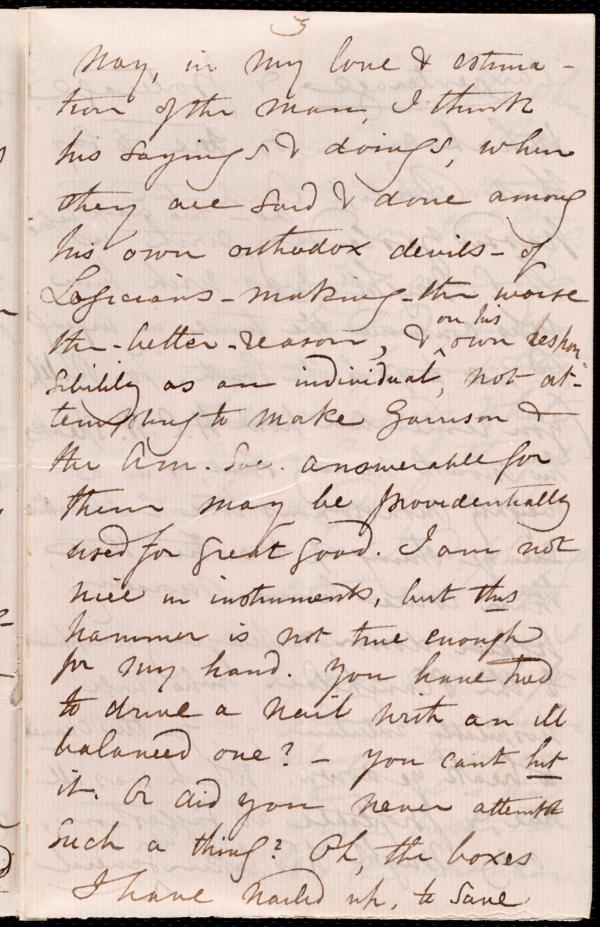 3
Nay, in my love & estima-
tion of the man, I think
his sayings & doings, when
they are said & done among
his own orthodox devils - of
Logicians - making - the worse
the - better - reason, & on his own respon-
sibility as an individual, not at-
tempting to make Garrison &
the Am. Soc. answerable for
them may be providentially
used for great good. I am not
nice in instruments, but this
hammer is not true enough
for my hand. You have tried
to drive a nail with an ill
balanced one? - you cant hit
it. Or did you never attempt
such a thing? Oh, the boxes
I have nailed up, to save